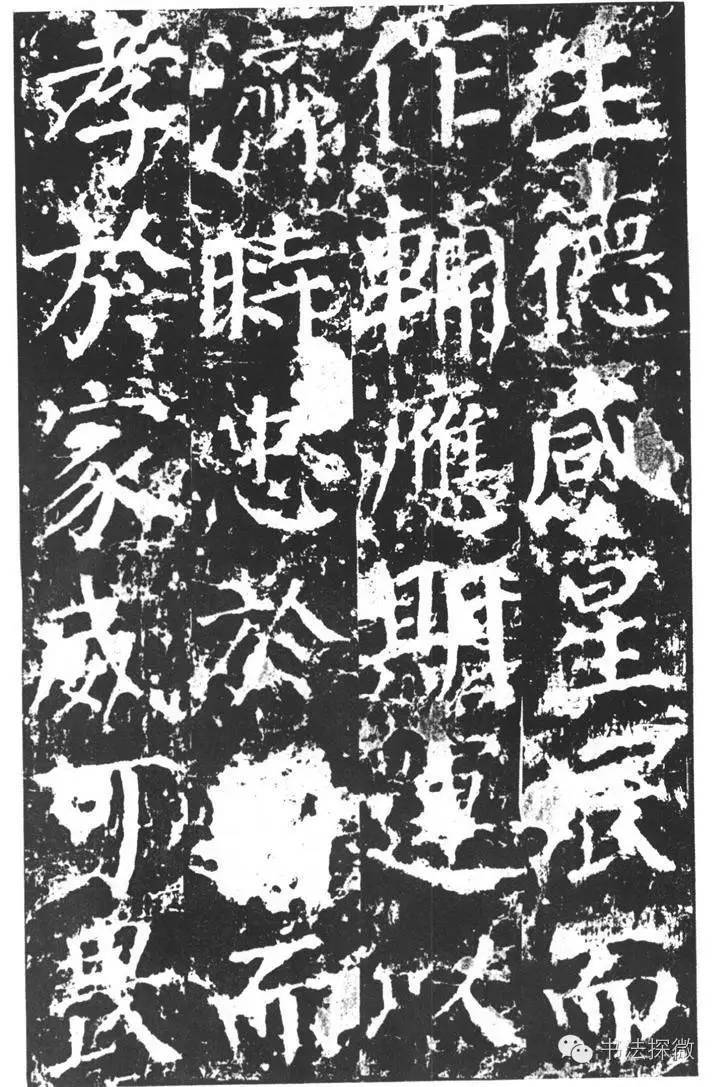 生德感星辰而
作輔應期運以
濟時忠於而
孝於家威可畏
书法探微